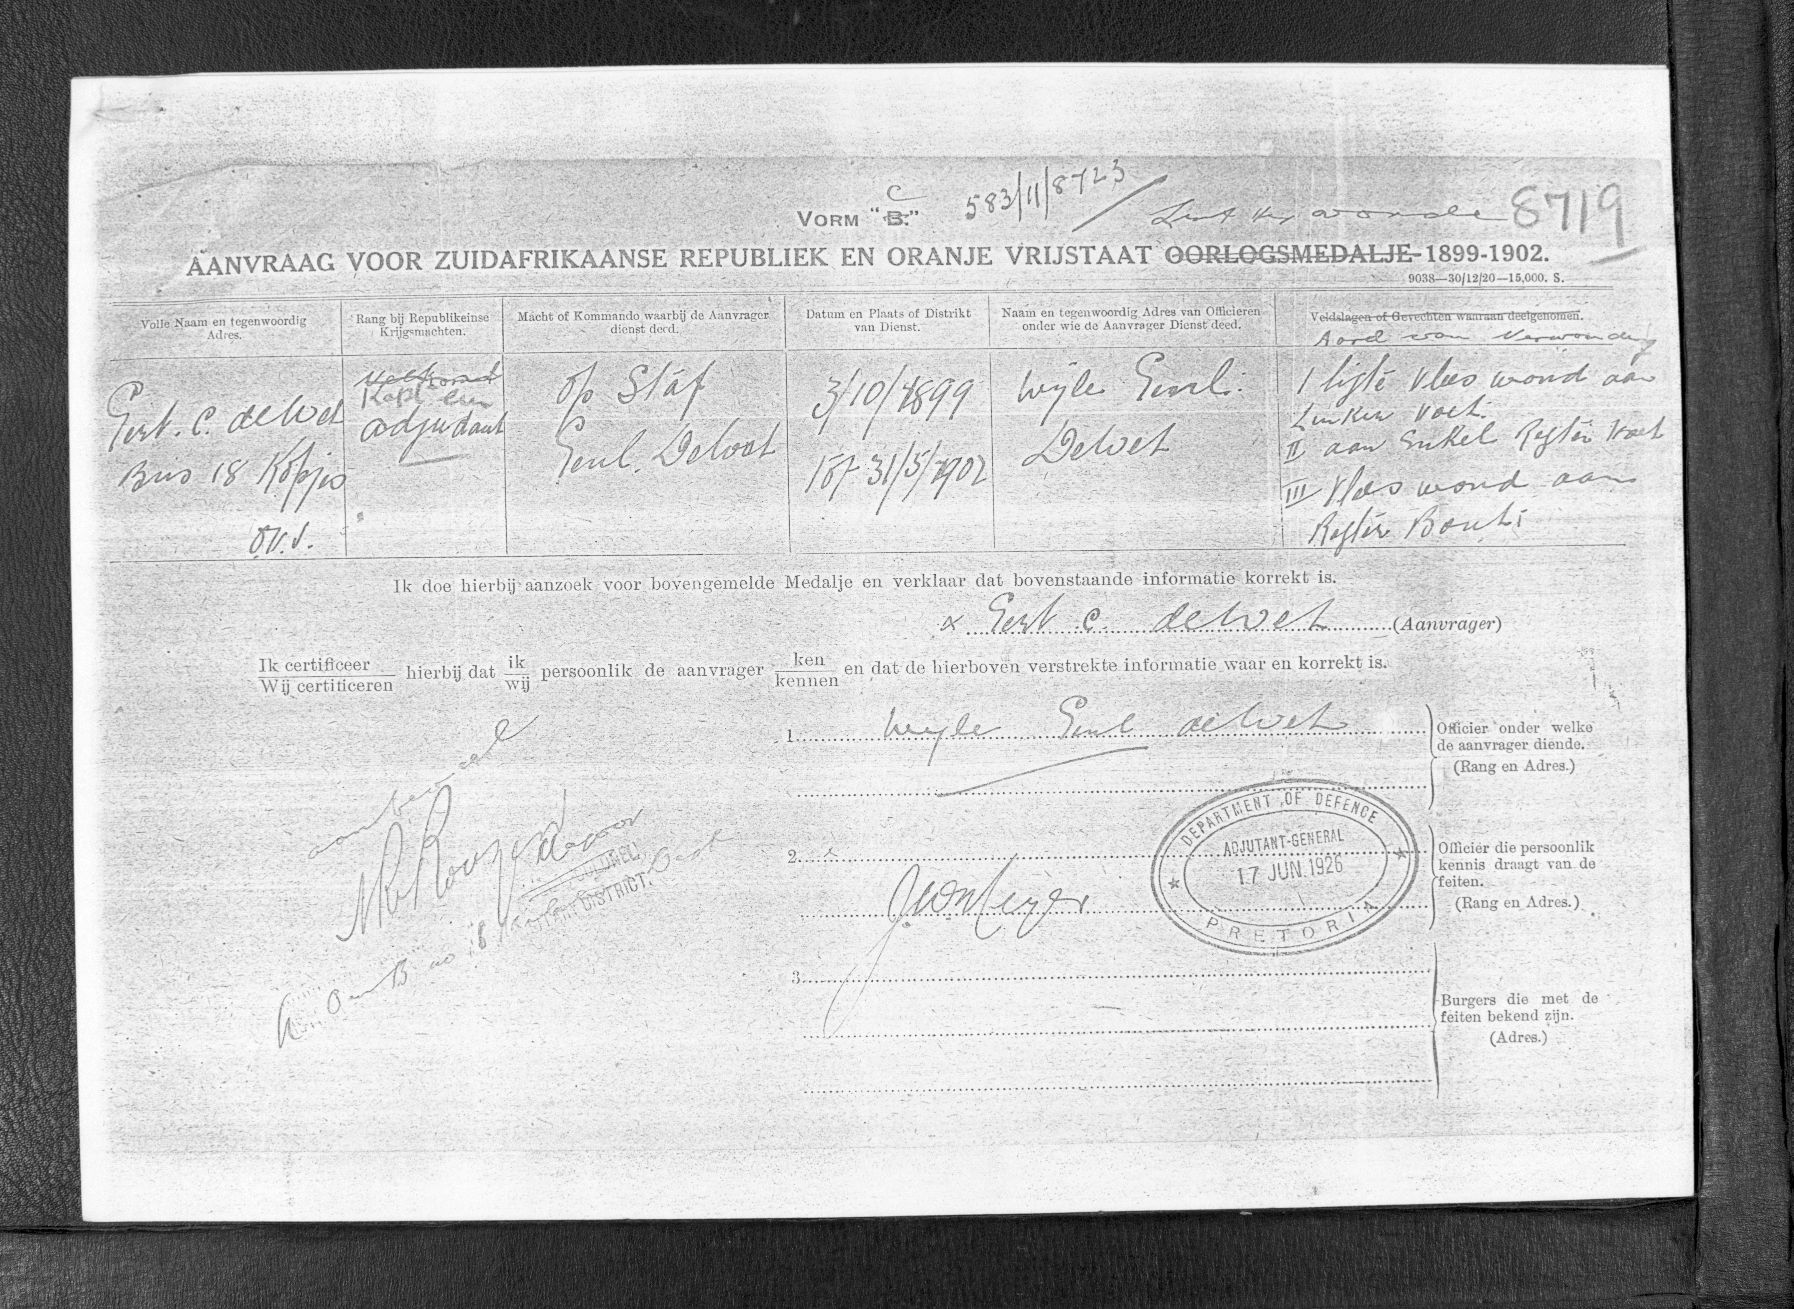 C
VORM "B." 583/11/8723 8719
AANVRAAG VOOR ZUIDAFRIKAANSE REPUBLIEK EN ORANJE VRIJSTAAT OORLOGSMEDALJE 1899-1902.
9038—30/12/20—15,000. S.
Volle Naam en tegenwoordig
Adres.
Rang bij Republikeinse
Krijgsmachten.
Macht of Kommando waarbij de Aanvrager
dienst deed.
Datum en Plaats of Distrikt
van Dienst.
Naam en tegenwoordig Adres van Officieren
onder wie de Aanvrager Dienst deed.
Veldslagen of Gevechten waaraan deelgenomen.
Aard van Verwonding
Gert. C. de Wet
Bus 18 Kopjes
O.V.S.
Kapt en
adjudant
op Staf
Genl. De Wet
3/10/1899
tot 31/5/1902
Wyle Genl.
De Wet
I ligte vlees wond aan
Linker voet.
II aan Enkel Regter voet
III Vlees wond aan
Regter Bout.
Ik doe hierbij aanzoek voor bovengemelde Medalje en verklaar dat bovenstaande informatie korrekt is.
x Gert C. de Wet (Aanvrager)
Ik certificeer
Wij certificeren
hierbij dat
ik
wij
persoonlik de aanvrager
ken
kennen
en dat de hierboven verstrekte informatie waar en korrekt is.
1. Wyle Genl de Wet
Officier onder welke
de aanvrager diende.
(Rang en Adres.)
aanbeveel
DEPARTMENT OF DEFENCE
ADJUTANT-GENERAL
17 JUN. 1926
PRETORIA
2.
Officier die persoonlik
kennis draagt van de
feiten.
(Rang en Adres.)
COLONEL
DISTRICT.
3.
Burgers die met de
feiten bekend zijn.
(Adres.)